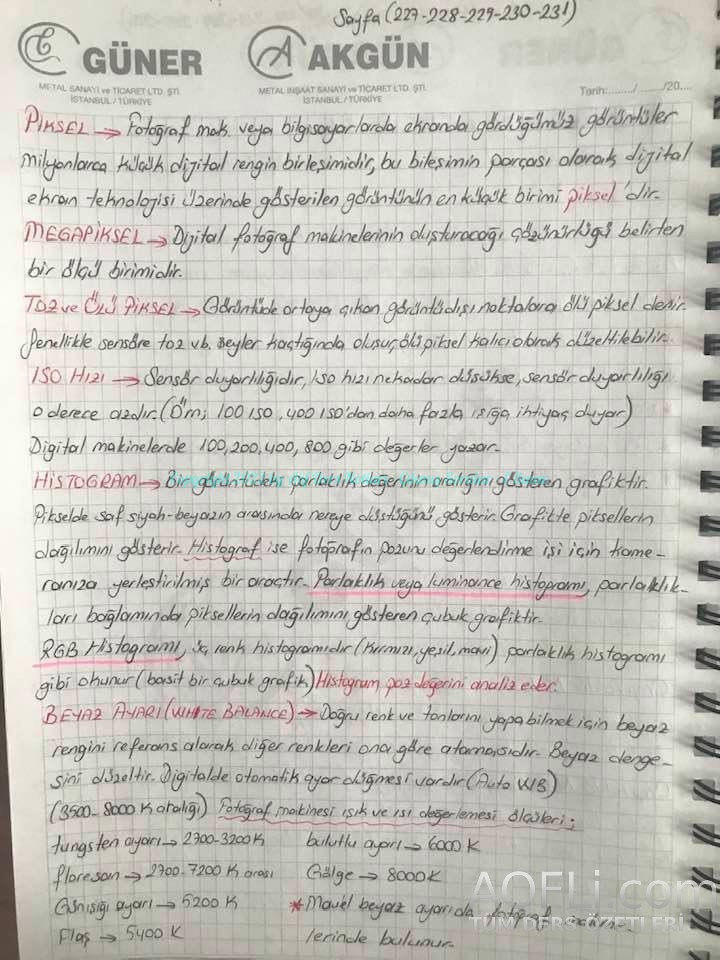 Sayfa (227-228-229-230-231)
GÜNER
METAL SANAYİ ve TİCARET LTD. ŞTİ.
İSTANBUL / TÜRKİYE
AKGÜN
METAL İNŞAAT SANAYİ ve TİCARET LTD. ŞTİ.
İSTANBUL / TÜRKİYE
Tarih:......../......../20....
PİKSEL → Fotoğraf mak. veya bilgisayarlarda ekranda gördüğümüz görüntüler
milyonlarca küçük dijital rengin birleşimidir, bu bileşimin parçası olarak dijital
ekran teknolojisi üzerinde gösterilen görüntünün en küçük birimi piksel'dir.
MEGAPİKSEL → Dijital fotoğraf makinelerinin oluşturacağı çözünürlüğü belirten
bir ölçü birimidir.
TOZ ve ÖLÜ PİKSEL → Görüntüde ortaya çıkan görüntü dışı noktalara ölü piksel denir.
Genellikle sensöre toz vb. şeyler kaçtığında oluşur, ölü piksel kalıcı olarak düzeltilebilir.
ISO HIZI → Sensör duyarlılığıdır, ISO hızı nekadar düşükse, sensör duyarlılığı
o derece azdır. (Örn; 100 ISO, 400 ISO'dan daha fazla ışığa ihtiyaç duyar)
Digital makinelerde 100, 200, 400, 800 gibi değerler yazar.
HİSTOGRAM → Bir görüntüdeki parlaklık değerinin aralığını gösteren grafiktir.
Pikselde saf siyah-beyazın arasında nereye düştüğünü gösterir. Grafikte piksellerin
dağılımını gösterir. Histograf ise fotoğrafın pozunu değerlendirme işi için kame-
ranıza yerleştirilmiş bir araçtır. Parlaklık veya luminance histogramı, parlaklık-
ları bağlamında piksellerin dağılımını gösteren çubuk grafiktir.
RGB Histogramı, üç renk histogramıdır (kırmızı, yeşil, mavi) parlaklık histogramı
gibi okunur (basit bir çubuk grafik) Histogram poz değerini analiz eder.
BEYAZ AYARI (WHITE BALANCE) → Doğru renk ve tonlarını yapabilmek için beyaz
rengini referans alarak diğer renkleri ona göre atamasıdır. Beyaz denge-
sini düzeltir. Digitalde otomatik ayar düğmesi vardır (Auto WB)
(3500-8000 K aralığı) Fotoğraf makinesi ışık ve ısı değerlemesi ölçüleri;
tungsten ayarı → 2700-3200 K bulutlu ayarı → 6000 K
floresan → 2700-7200 K arası Gölge → 8000 K
Günışığı ayarı → 5200 K * Manuel beyaz ayarı da fotoğraf
Flaş → 5400 K lerinde bulunur.
AOFLi.com
TÜM DERS ÖZETLERİ